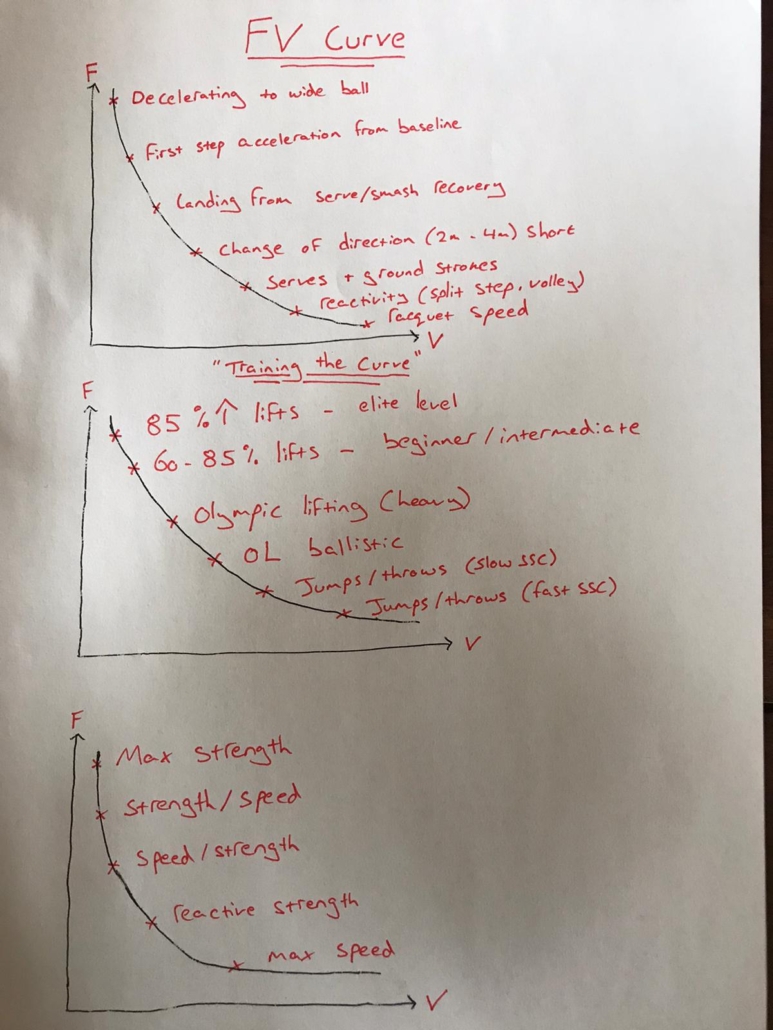 FV Curve
F
* Decelerating to wide ball
* First step acceleration from baseline
* Landing from serve/smash recovery
* Change of direction (2m - 4m) short
* Serves + ground strokes
* reactivity (split step, volley)
* racquet speed
V
"Training the Curve"
F
* 85%↑ lifts - elite level
* 60-85% lifts - beginner/intermediate
* Olympic lifting (heavy)
* OL ballistic
* Jumps/throws (slow SSC)
* Jumps/throws (fast SSC)
V
F
* Max strength
* Strength/speed
* Speed/strength
* reactive strength
* max speed
V